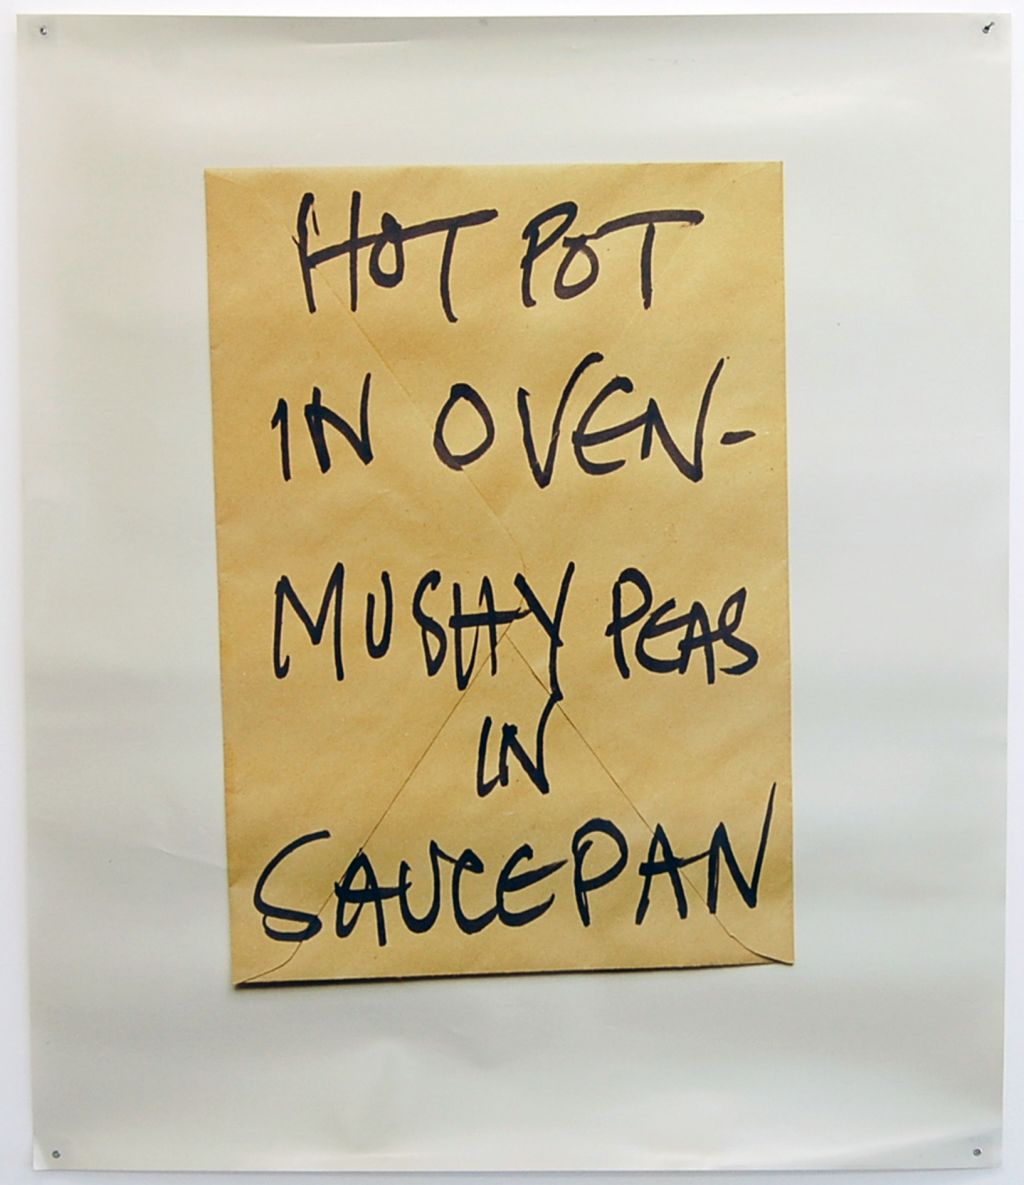 HOT POT
IN OVEN-
MUSHY PEAS
IN
SAUCEPAN